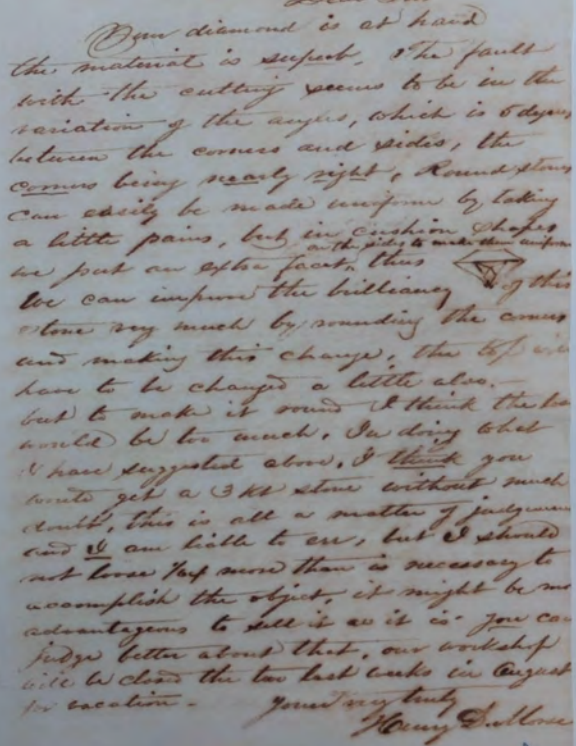 Dear Sir
Your diamond is at hand
the material is superb. The fault
with the cutting seems to be in the
variation of the angles, which is 5 degrees
between the corners and sides, the
corners being nearly right, Round stones
can easily be made uniform by taking
a little pains, but in cushion shapes
on the sides to make them uniform
we put an extra facet, thus
We can improve the brilliancy of this
stone very much by rounding the corners
and making this change, the top will
have to be changed a little also.—
but to make it round I think the loss
would be too much. In doing what
I have suggested above, I think you
would get a 3 Kt stone without much
doubt, this is all a matter of judgement
and I am liable to err, but I should
not loose 1/64 more than is necessary to
accomplish the object, it might be
advantageous to sell it as it is - you can
judge better about that, our workshop
will be closed the two last weeks in August
for vacation - Yours very truly
Henry D. Morse